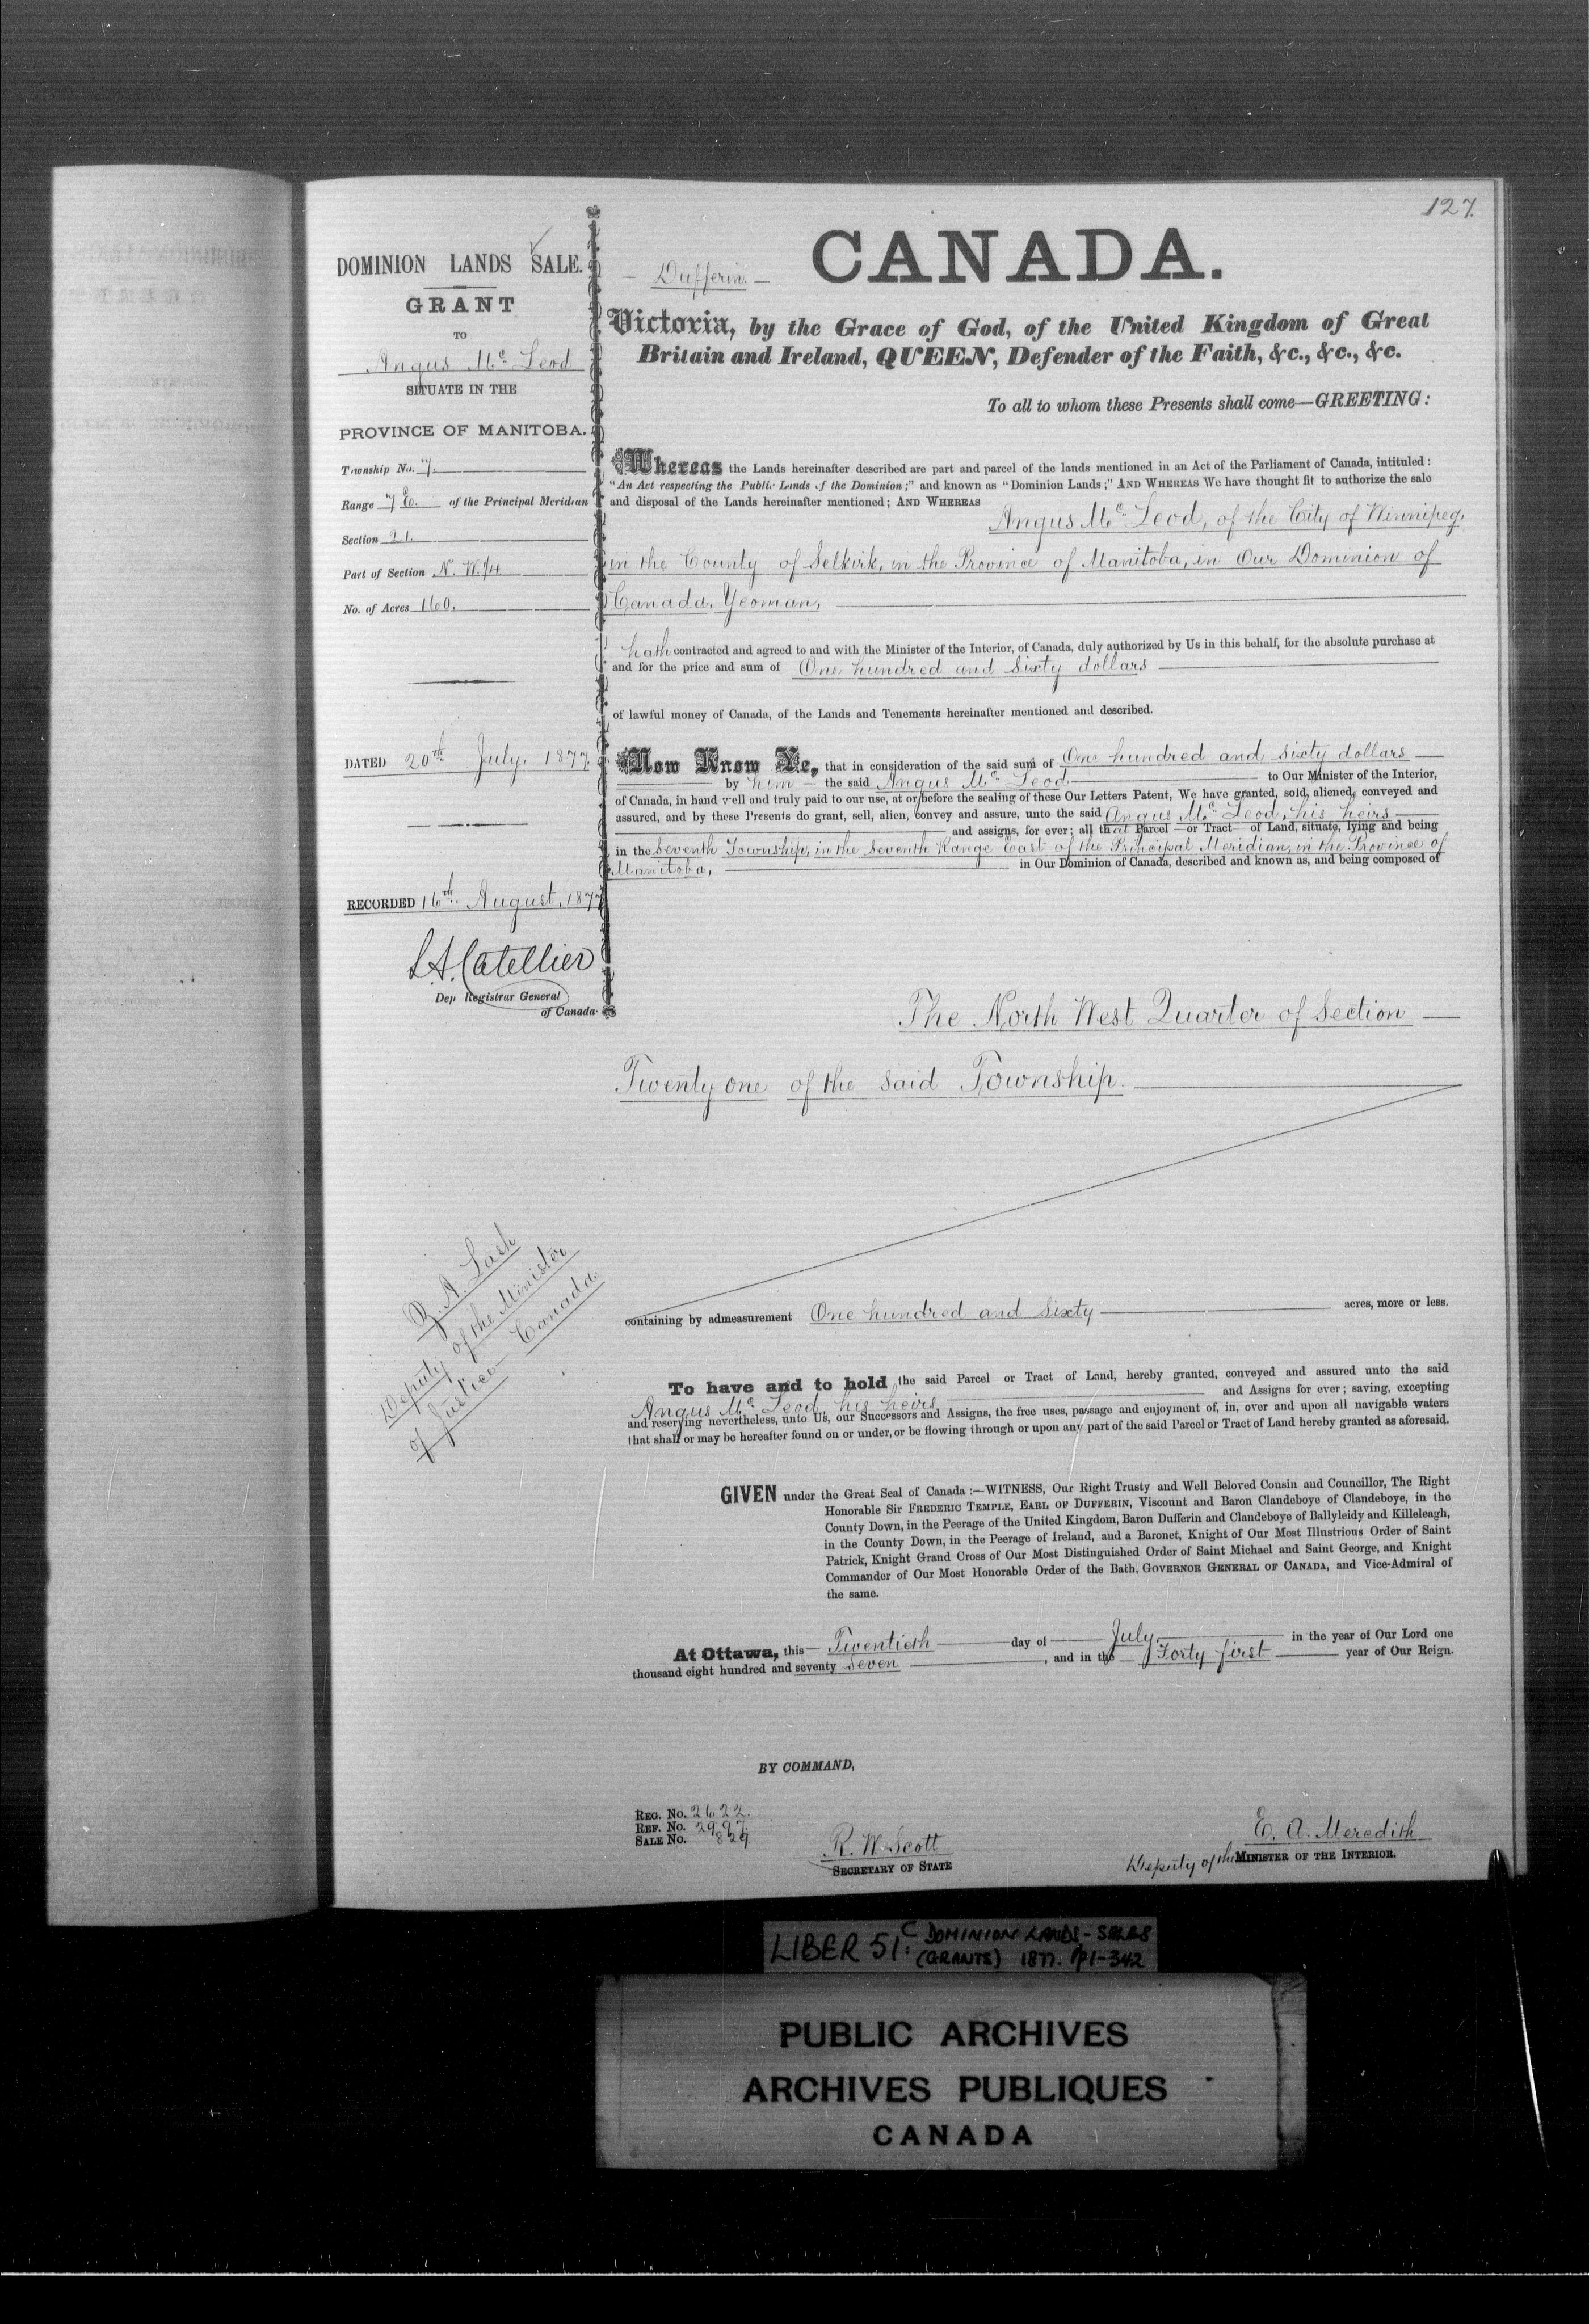 127.
DOMINION LANDS SALE.
GRANT
TO
Angus Mc Leod
SITUATE IN THE
PROVINCE OF MANITOBA.
Township No. 7.
Range 7 E. of the Principal Meridian
Section 21.
Part of Section N. W. 1/4
No. of Acres 160.
DATED 20th July, 1877.
RECORDED 16th August, 1877
L.A. Catellier
Dep Registrar General
of Canada.
Z. A. Lash
Deputy of the Minister
of Justice Canada
— Dufferin. —
CANADA.
Victoria, by the Grace of God, of the United Kingdom of Great
Britain and Ireland, QUEEN, Defender of the Faith, &c., &c., &c.
To all to whom these Presents shall come—GREETING:
Whereas the Lands hereinafter described are part and parcel of the lands mentioned in an Act of the Parliament of Canada, intituled:
"An Act respecting the Public Lands of the Dominion;" and known as "Dominion Lands;" AND WHEREAS We have thought fit to authorize the sale
and disposal of the Lands hereinafter mentioned; AND WHEREAS
Angus Mc Leod, of the City of Winnipeg,
in the County of Selkirk, in the Province of Manitoba, in Our Dominion of
Canada, Yeoman,
hath contracted and agreed to and with the Minister of the Interior, of Canada, duly authorized by Us in this behalf, for the absolute purchase at
and for the price and sum of One hundred and Sixty dollars
of lawful money of Canada, of the Lands and Tenements hereinafter mentioned and described.
Now Know Ye, that in consideration of the said sum of One hundred and Sixty dollars
by him — the said Angus Mc Leod to Our Minister of the Interior,
of Canada, in hand well and truly paid to our use, at or before the sealing of these Our Letters Patent, We have granted, sold, aliened, conveyed and
assured, and by these Presents do grant, sell, alien, convey and assure, unto the said Angus Mc Leod, his heirs
and assigns, for ever; all that Parcel — or Tract — of Land, situate, lying and being
in the Seventh Township, in the Seventh Range East of the Principal Meridian, in the Province of
Manitoba, in Our Dominion of Canada, described and known as, and being composed of
The North West Quarter of Section
Twenty one of the said Township.
containing by admeasurement One hundred and Sixty acres, more or less.
To have and to hold the said Parcel or Tract of Land, hereby granted, conveyed and assured unto the said
Angus Mc Leod, his heirs and Assigns for ever; saving, excepting
and reserving nevertheless, unto Us, our Successors and Assigns, the free uses, passage and enjoyment of, in, over and upon all navigable waters
that shall or may be hereafter found on or under, or be flowing through or upon any part of the said Parcel or Tract of Land hereby granted as aforesaid.
GIVEN under the Great Seal of Canada:—WITNESS, Our Right Trusty and Well Beloved Cousin and Councillor, The Right
Honorable Sir FREDERIC TEMPLE, EARL OF DUFFERIN, Viscount and Baron Clandeboye of Clandeboye, in the
County Down, in the Peerage of the United Kingdom, Baron Dufferin and Clandeboye of Ballyleidy and Killeleagh,
in the County Down, in the Peerage of Ireland, and a Baronet, Knight of Our Most Illustrious Order of Saint
Patrick, Knight Grand Cross of Our Most Distinguished Order of Saint Michael and Saint George, and Knight
Commander of Our Most Honorable Order of the Bath, GOVERNOR GENERAL OF CANADA, and Vice-Admiral of
the same.
At Ottawa, this — Twentieth — day of — July, — in the year of Our Lord one
thousand eight hundred and seventy seven —, and in the — Forty first — year of Our Reign.
BY COMMAND,
REG. No. 2622.
REF. No. 2997.
SALE No. 829
R. W. Scott
SECRETARY OF STATE
E. A. Meredith
Deputy of the MINISTER OF THE INTERIOR.
LIBER 51C: DOMINION LANDS - SALES
(GRANTS) 1877. pp 1-342
PUBLIC ARCHIVES
ARCHIVES PUBLIQUES
CANADA